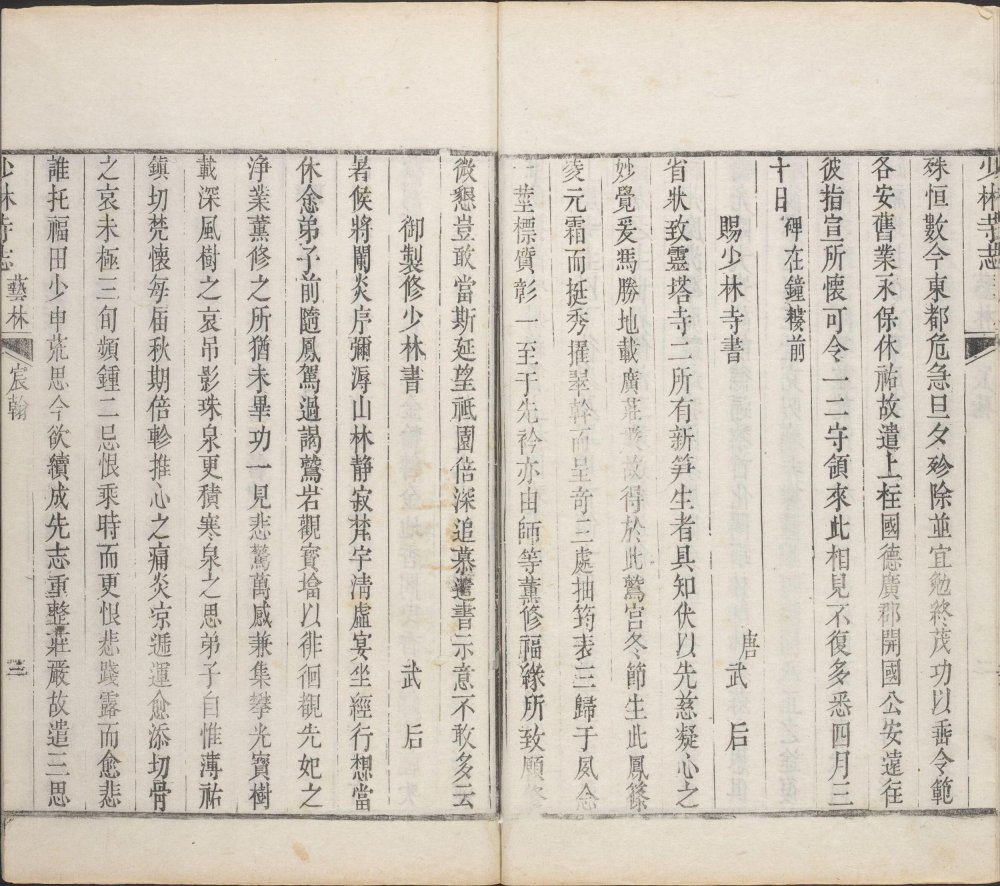 少林寺志
殊恒數今東都危急旦夕殄除並宜勉終茂功以垂令範
各安舊業永保休祐故遣上柱國德廣郡開國公安遠往
彼指宣所懷可令一二守領來此相見不復多悉四月三
十日碑在鐘樓前
賜少林寺書 唐武 后
省狀致靈塔寺二所有新笋生者具知伏以先慈凝心之
妙覺爰馮勝地載廣莊嚴故得於此鷲宮冬節生此鳳篠
凌元霜而挺秀擢翠幹而呈奇三處抽筠表三歸于夙念
一莖標質彰一至于先衿亦由師等薰修福緣所致願修
微懇豈敢當斯延望祇園倍深追慕遣書示意不敢多云
御製修少林書 武 后
暑候將闌炎序彌溽山林静寂梵宇清虛宴坐經行想當
休悆弟子前隨鳳駕過謁鷲岩觀寳墖以徘徊觀先妃之
浄業薰修之所猶未畢功一見悲驚萬感兼集攀光寳樹
載深風樹之哀吊影珠泉更積寒泉之思弟子自惟薄祐
鎮切焭懷每届秋期倍軫推心之痛炎凉遞運愈添切骨
之哀未極三旬頻鍾二忌恨乘時而更恨悲踐露而愈悲
誰托福田少申荒思今欲續成先志重整莊嚴故遣三思
少林寺志 藝林 宸翰 三